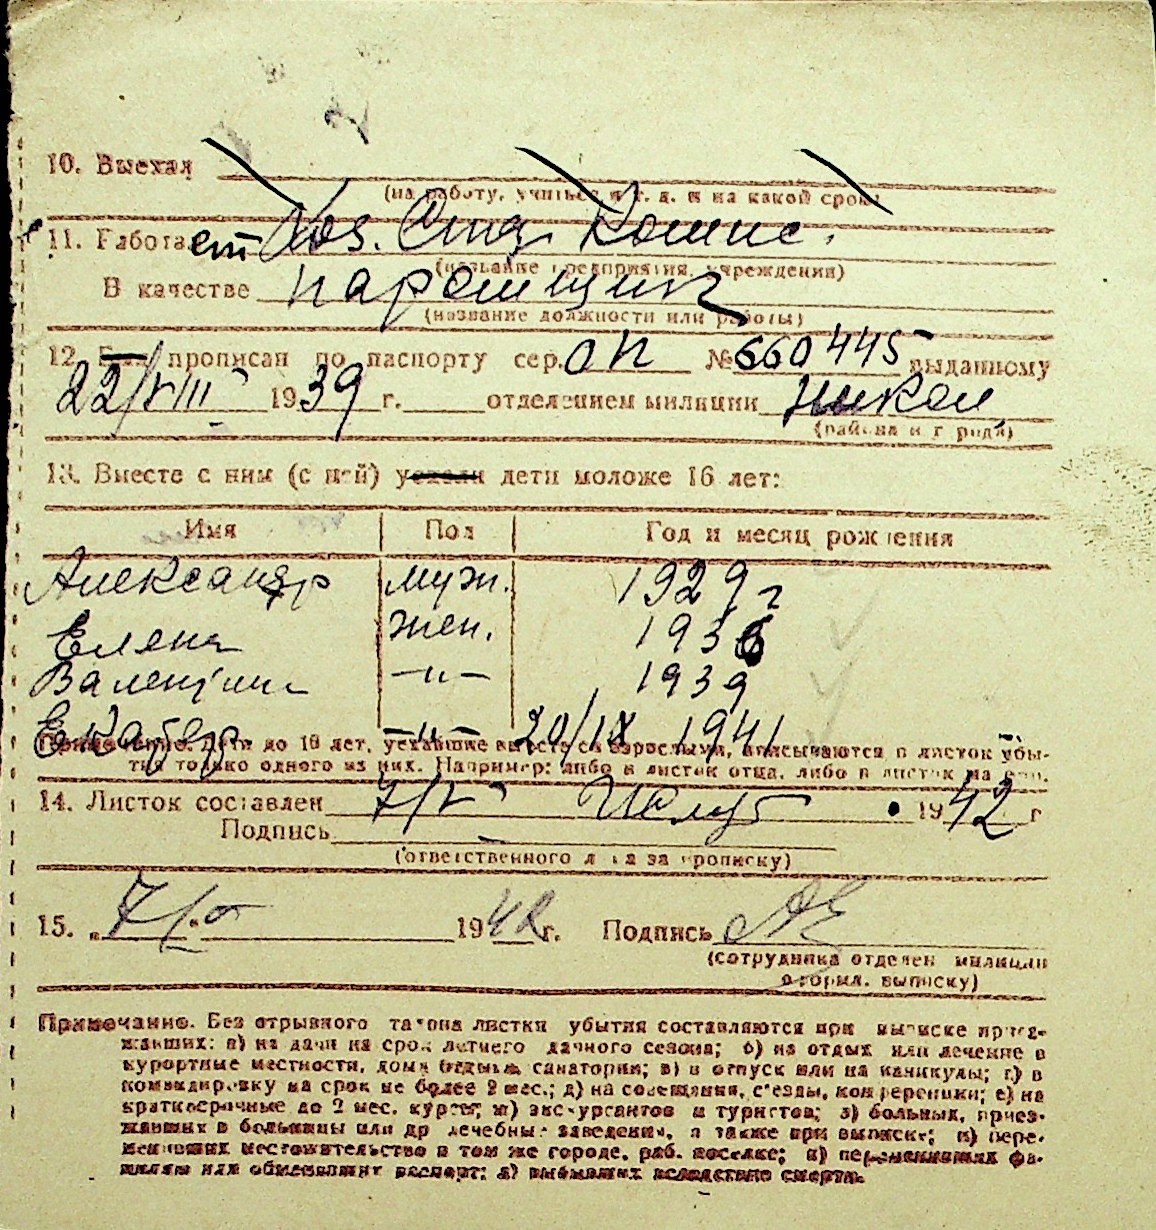 10. Выехал
(на работу, учиться и т. д. и на какой срок)
11. Работает Хоз. Спец. Комис.
(название предприятия, учреждения)
В качестве
(название должности или работы)
12. Был прописан по паспорту сер. ОП № 660445 выданному
22/VIII 1939 г. отделением милиции Никол
(района и города)
13. Вместе с ним (с ней) уехали дети моложе 16 лет:
Имя Пол Год и месяц рождения
Александр муж. 1929 г
Елена жен. 1936
Валентина –"– 1939
Екатер –"– 20/IX 1941
Примечание. Дети до 16 лет, уехавшие вместе со взрослыми, вписываются в листок убы-
тия только одного из них. Например: либо в листок отца, либо в листок матери.
14. Листок составлен 7/V 1942 г
Подпись
(ответственного лица за прописку)
15. „7/V" 1942 г. Подпись
(сотрудника отделен милиции
оформл. выписку)
Примечание. Без отрывного талона листки убытия составляются при выписке приез-
жавших: а) на дачи на срок летнего дачного сезона; б) на отдых или лечение в
курортные местности, дома отдыха, санатории; в) в отпуск или на каникулы; г) в
командировку на срок не более 2 мес.; д) на совещания, съезды, конференции; е) на
краткосрочные до 2 мес. курсы; ж) экскурсантов и туристов; з) больных, приез-
жавших в больницы или др лечебные заведения, а также при выписке; и) пере-
менивших местожительство в том же городе, раб. поселке; к) переменивших фа-
милии или обменявших паспорт; л) выбывших вследствие смерти.